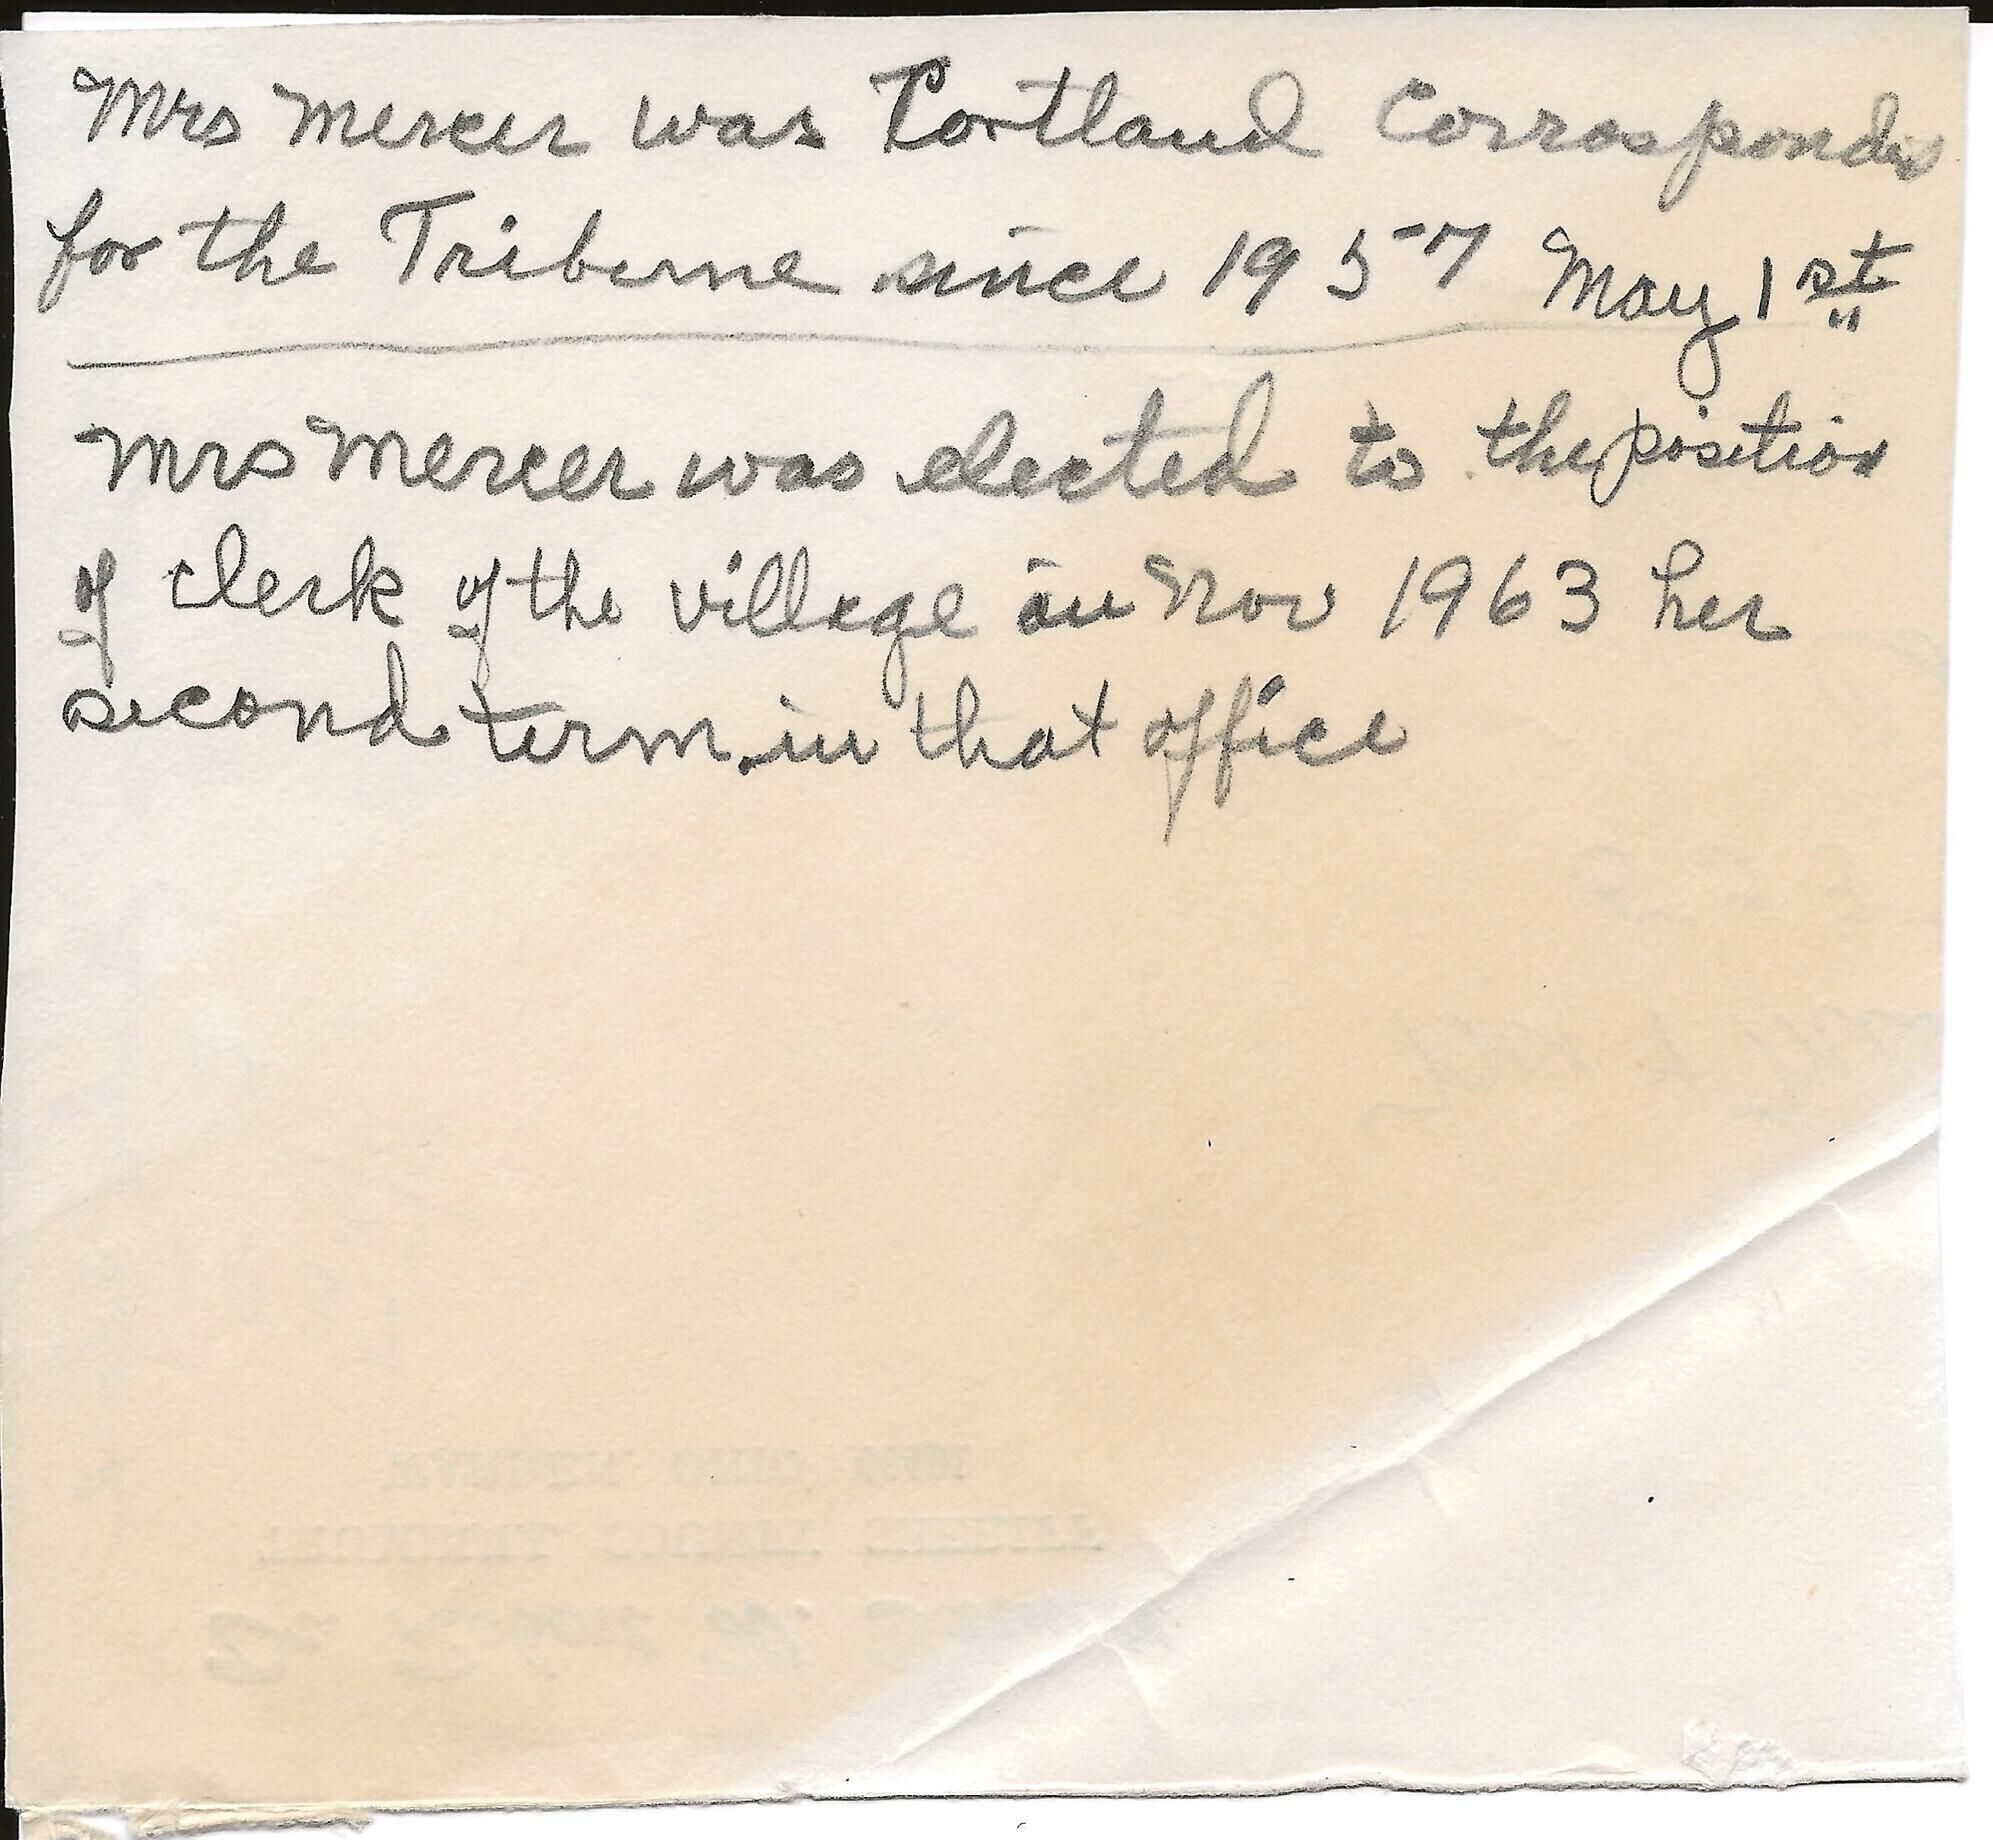 Mrs Mercer was Portland
for the Tribune since 1957 May 1st
Mrs Mercer was elected to the position
of clerk of the village in Nov 1963 her
second term in that office